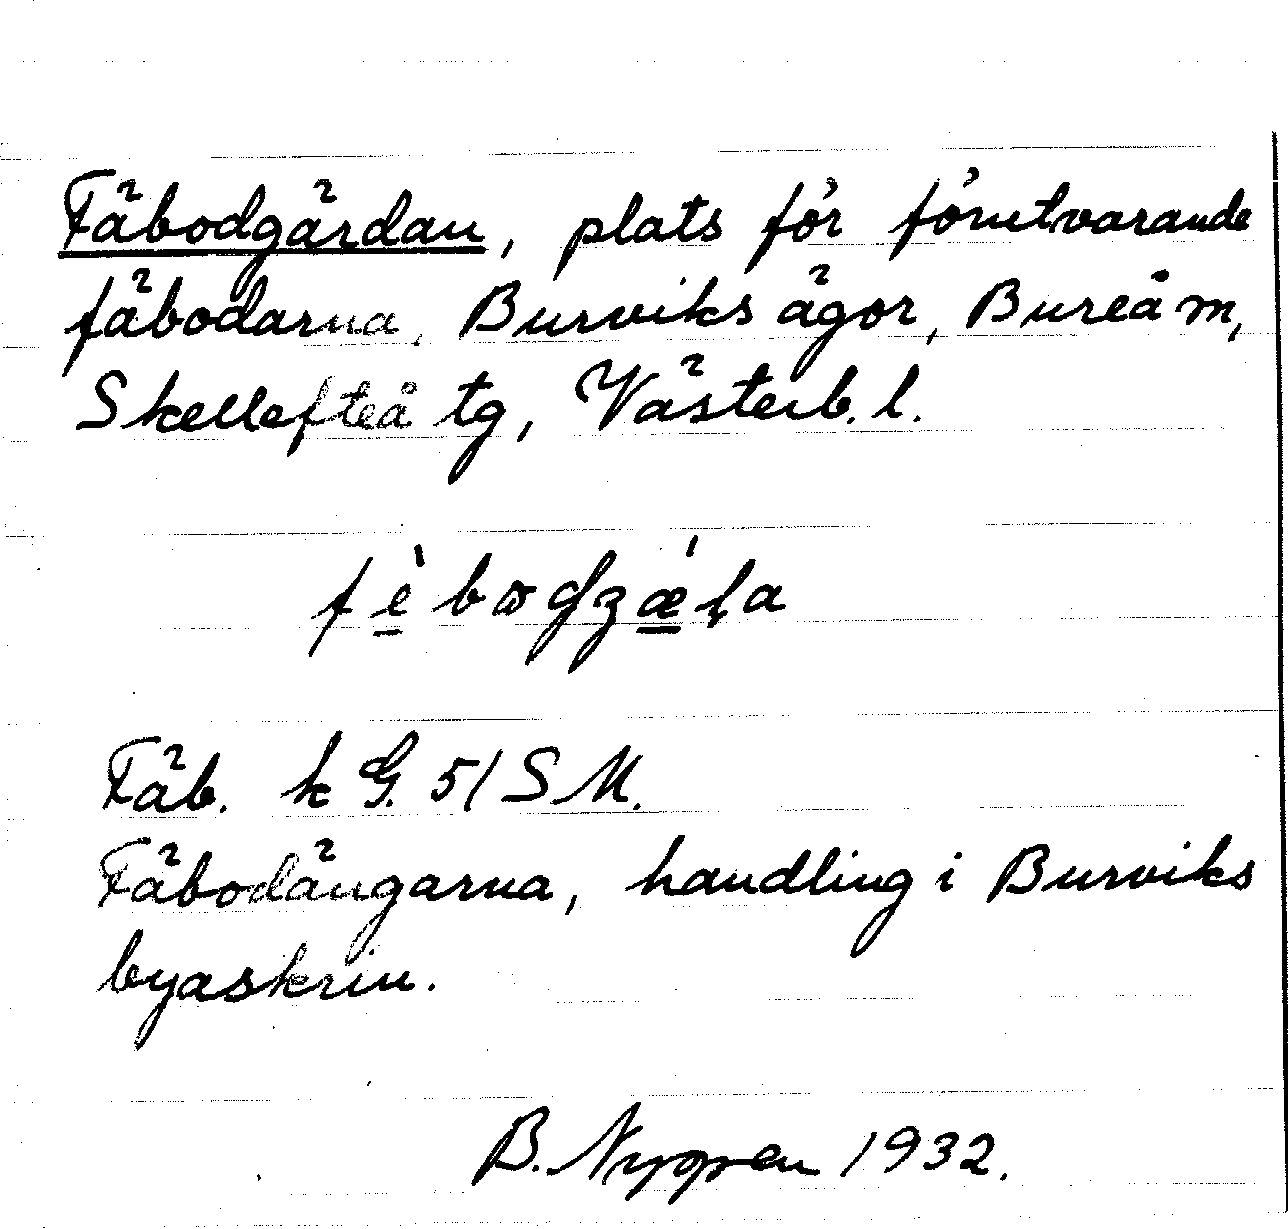 Fäbodgärdan, plats för förutvarande
fäbodarna, Burviks ägor, Bureå m,
Skellefteå tg, Västerb. l.
Fäb. k G. 51 S M.
Fäbodängarna, handling i Burviks
byaskrin.
B. Nygren 1932.